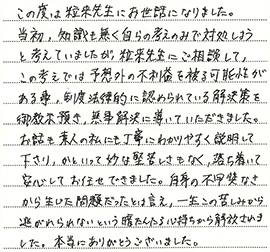 この度は粒来先生にお世話になりました。
当初、知識も無く自らの考えのみで対処しよう
と考えていましたが粒来先生にご相談して、
この考えでは予想外の不利益を被る可能性が
ある事、制度法律的に認められている解決策を
御教示頂き、無事解決に導いていただきました。
お話も素人の私にも丁寧にわかりやすく説明して
下さり、かといって妙な堅苦しさもなく、落ち着いて
安心してお任せできました。自身の不甲斐なさ
から生じた問題だったとは言え、一生この苦しみから
逃がれられないという暗たんたる心持ちから解放されま
した。本当にありがとうございました。